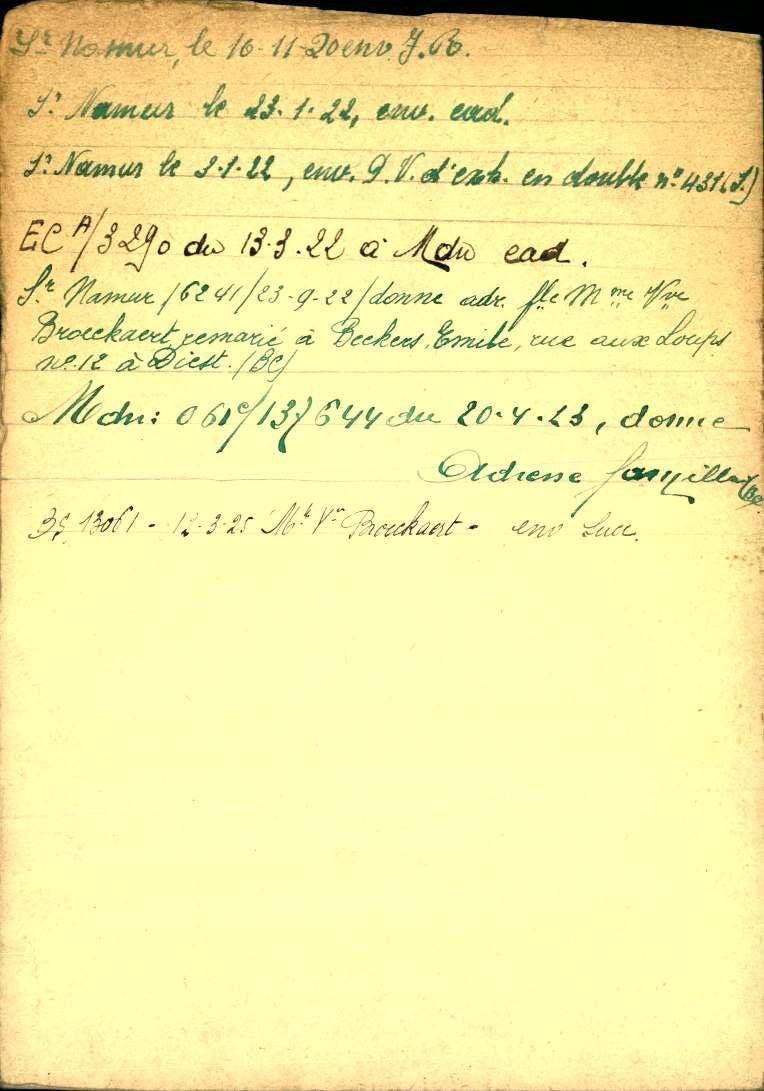 Sr. Namur, le 16-11-20 env J.B.
Sr. Namur le 23.1.22, env. cad.
Sr. Namur le 2.1.22, env. P.V. d'exh. en double n° 431 (S.)
EC A/3290 du 13.3.22 à Mdn cad.
Sr. Namur /6241/23-9-22/donne adr. flle Mme Vve
Broeckaert, remarié à Beckers, Emile, rue aux Loups
n° 12 à Diest. (BC)
Mdn: 061c/137644 du 20.4.23, donne
Adresse famille
BS 13061 - 12-3-25 Vve Broeckaert - env